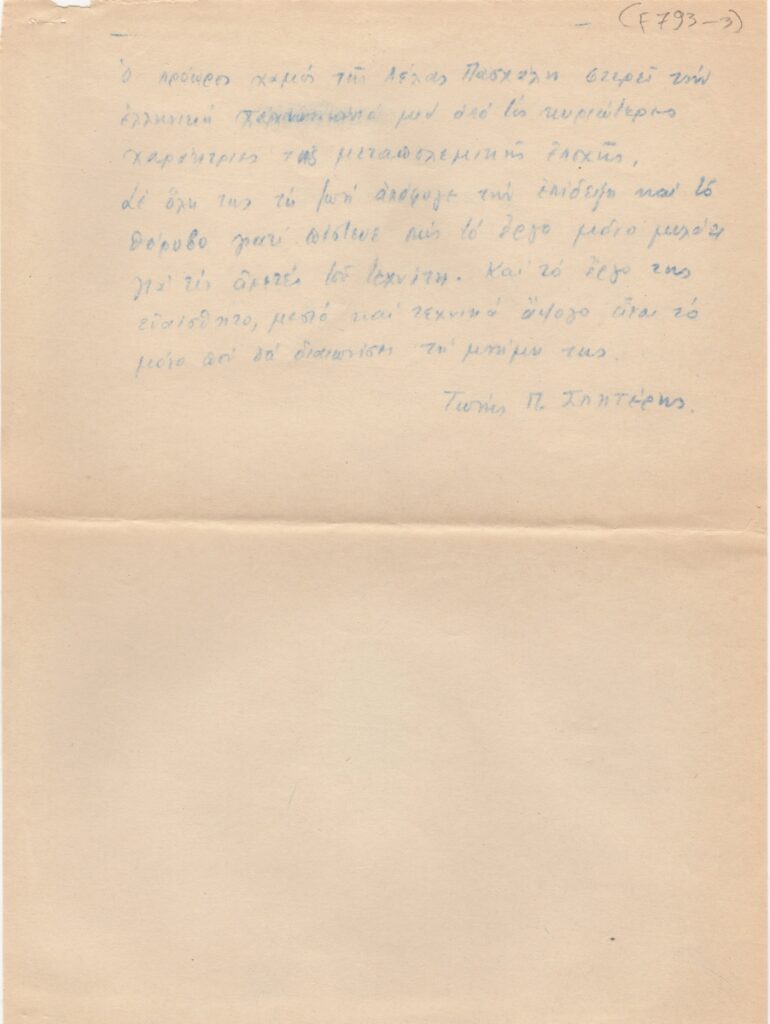 (F793-3)
Ὁ πρόωρος χαμός τῆς Λέλας Πασχάλη στερεῖ τήν
ἑλληνική μιά ἀπό τίς κυριώτερες
χαράκτριες τῆς μεταπολεμικῆς ἐποχῆς.
Σέ ὅλη της τή ζωή ἀπόφυγε τήν ἐπίδειξη καί τό
θόρυβο γιατί πίστευε πώς τό ἔργο μόνο μιλάει
γιά τίς ἀρετές τοῦ τεχνίτη. Καί τό ἔργο της
εὐαίσθητο, μεστό καί τεχνικά ἄψογο εἶναι τό
μόνο πού θά διαιωνίσει τή μνήμη της.
Τώνης Π. Σπητέρης.